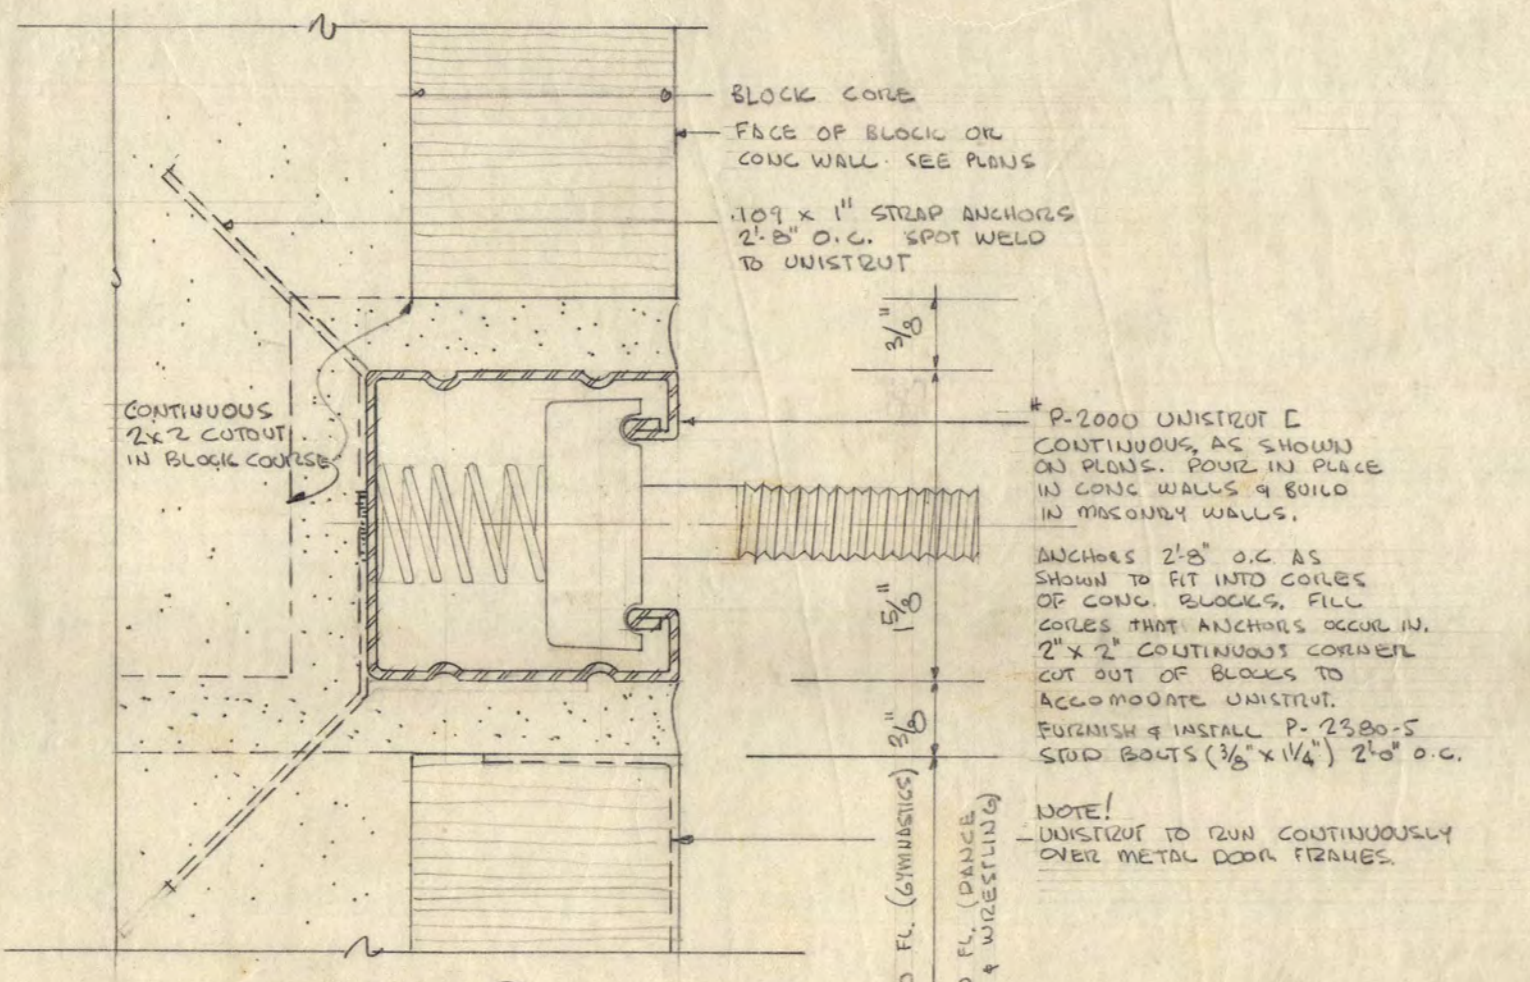 BLOCK CORE
FACE OF BLOCK OR
CONC WALL. SEE PLANS
.109 x 1" STRAP ANCHORS
2'-8" O.C. SPOT WELD
TO UNISTRUT
3/8"
CONTINUOUS
2x2 CUTOUT
IN BLOCK COURSE
* P-2000 UNISTRUT [
CONTINUOUS, AS SHOWN
ON PLANS. POUR IN PLACE
IN CONC WALLS & BUILD
IN MASONRY WALLS.
ANCHORS 2'-8" O.C. AS
SHOWN TO FIT INTO CORES
OF CONC. BLOCKS. FILL
CORES THAT ANCHORS OCCUR IN.
2" x 2" CONTINUOUS CORNER
CUT OUT OF BLOCKS TO
ACCOMODATE UNISTRUT.
FURNISH & INSTALL P-2380-5
STUD BOLTS (3/8" x 1 1/4") 2'-0" O.C.
1 5/8"
3/8"
NOTE!
UNISTRUT TO RUN CONTINUOUSLY
OVER METAL DOOR FRAMES.
FL. (GYMNASTICS)
FL. (DANCE
& WRESTLING)